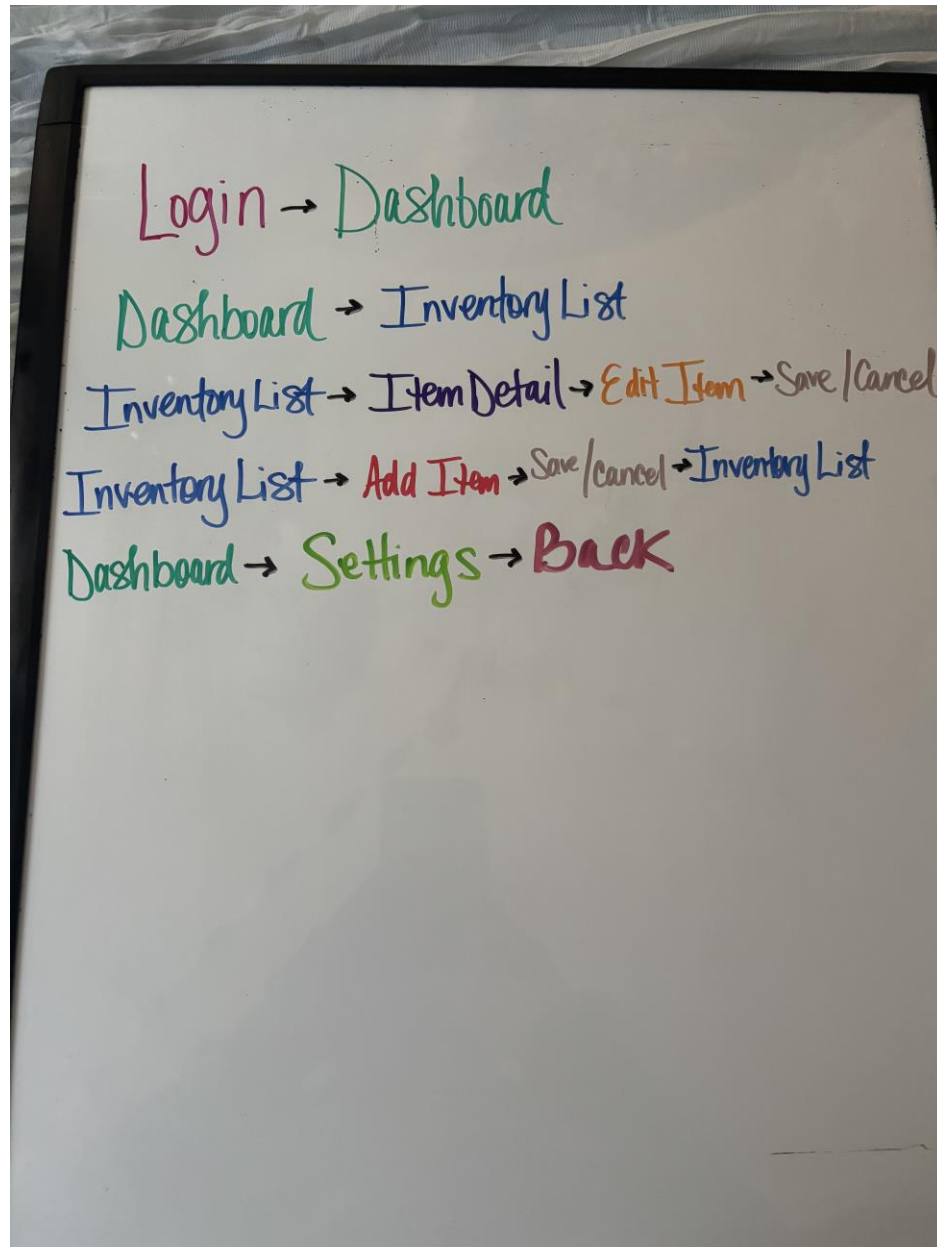 Login → Dashboard
Dashboard → Inventory List
Inventory List → Item Detail → Edit Item → Save/Cancel
Inventory List → Add Item → Save/cancel → Inventory List
Dashboard → Settings → Back